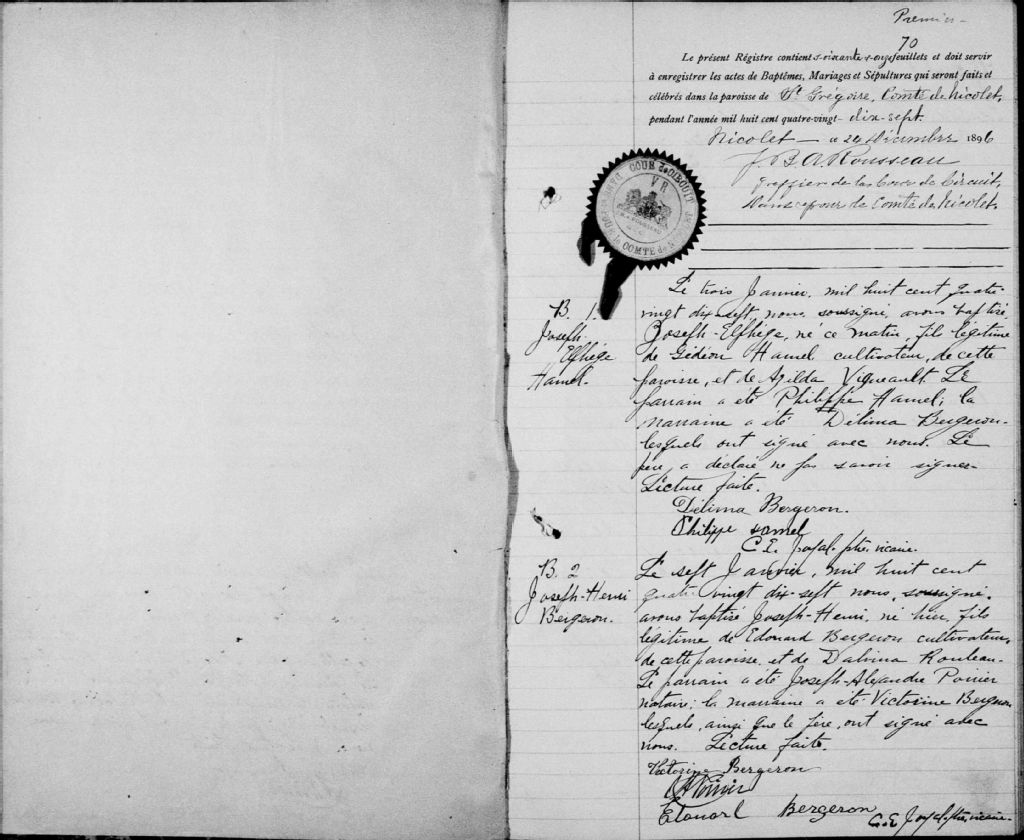 Premier
70
Le présent Régistre contient soixante & onze feuillets et doit servir
à enregistrer les actes de Baptêmes, Mariages et Sépultures qui seront faits et
célébrés dans la paroisse de St Grégoire, Comté de Nicolet,
pendant l'année mil huit cent quatre-vingt-dix-sept.
Nicolet — 24 Décembre 1896
J. B. A. Rousseau
greffier de la Cour de Circuit,
dans et pour le Comté de Nicolet.
COUR de CIRCUIT
V R
COMTÉ de
B. 1.
Joseph
Elphège
Hamel.
Le trois Janvier, mil huit cent quatre
vingt dix-sept nous, soussigné, avons baptisé
Joseph-Elphège, né ce matin, fils légitime
de Gédéon Hamel cultivateur, de cette
paroisse, et de Azilda Vigneault. Le
parrain a été Philippe Hamel; la
marraine a été Délima Bergeron-
lesquels ont signé avec nous. Le
père, a déclaré ne pas savoir signer-
Lecture faite.
Délima Bergeron.
Philippe Hamel
C. E. ptre, vicaire.
B. 2
Joseph-Henri
Bergeron.
Le sept Janvier, mil huit cent
quatre vingt dix-sept nous, soussigné,
avons baptisé Joseph-Henri, né hier, fils
légitime de Edouard Bergeron cultivateur,
de cette paroisse, et de Dalvina Rouleau-
Le parrain a été Joseph-Alexandre Poirier
notaire; la marraine a été Victorine Bergeron
lesquels, ainsi que le père, ont signé avec
nous. Lecture faite.
Victorine Bergeron
Poirier
Edouard Bergeron
C. E. ptre, vicaire.